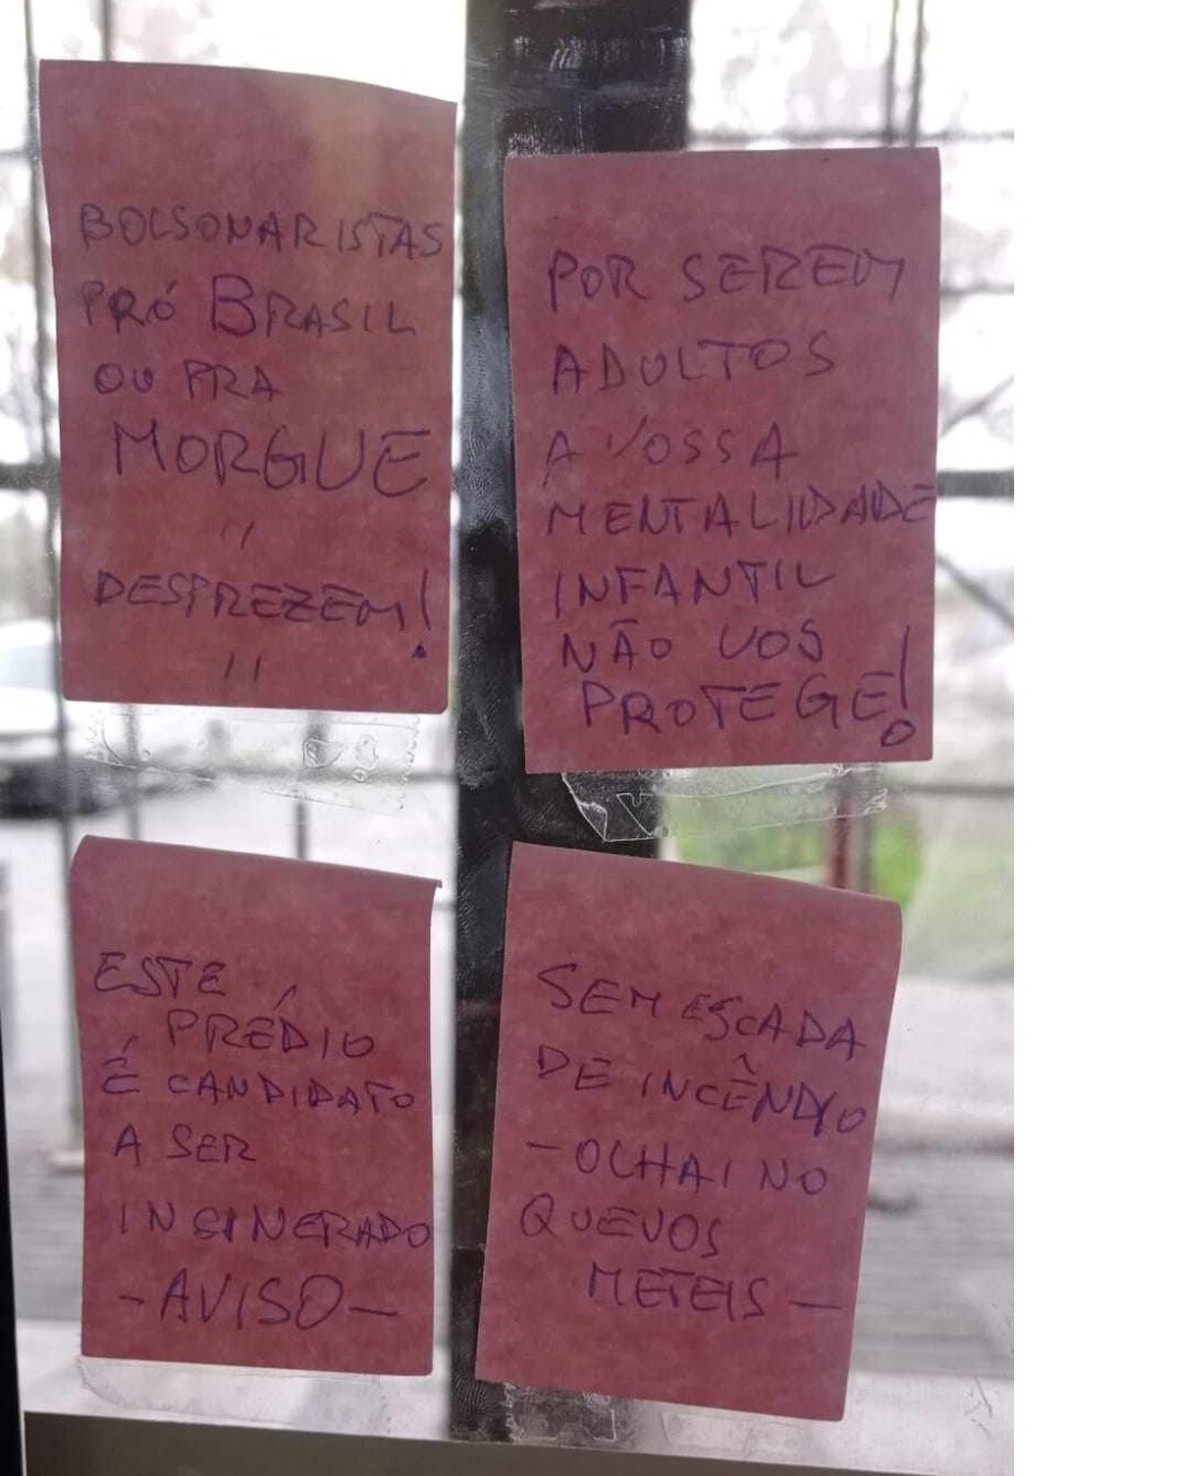 BOLSONARISTAS
PRÓ BRASIL
OU PRA
MORGUE
"
DESPREZEM!
"
POR SEREM
ADULTOS
A VOSSA
MENTALIDADE
INFANTIL
NÃO VOS
PROTEGE!
ESTE
PRÉDIO
É CANDIDATO
A SER
INSINERADO
-AVISO-
SEM ESCADA
DE INCÊNDIO
-OLHAI NO
QUE VOS
METEIS-